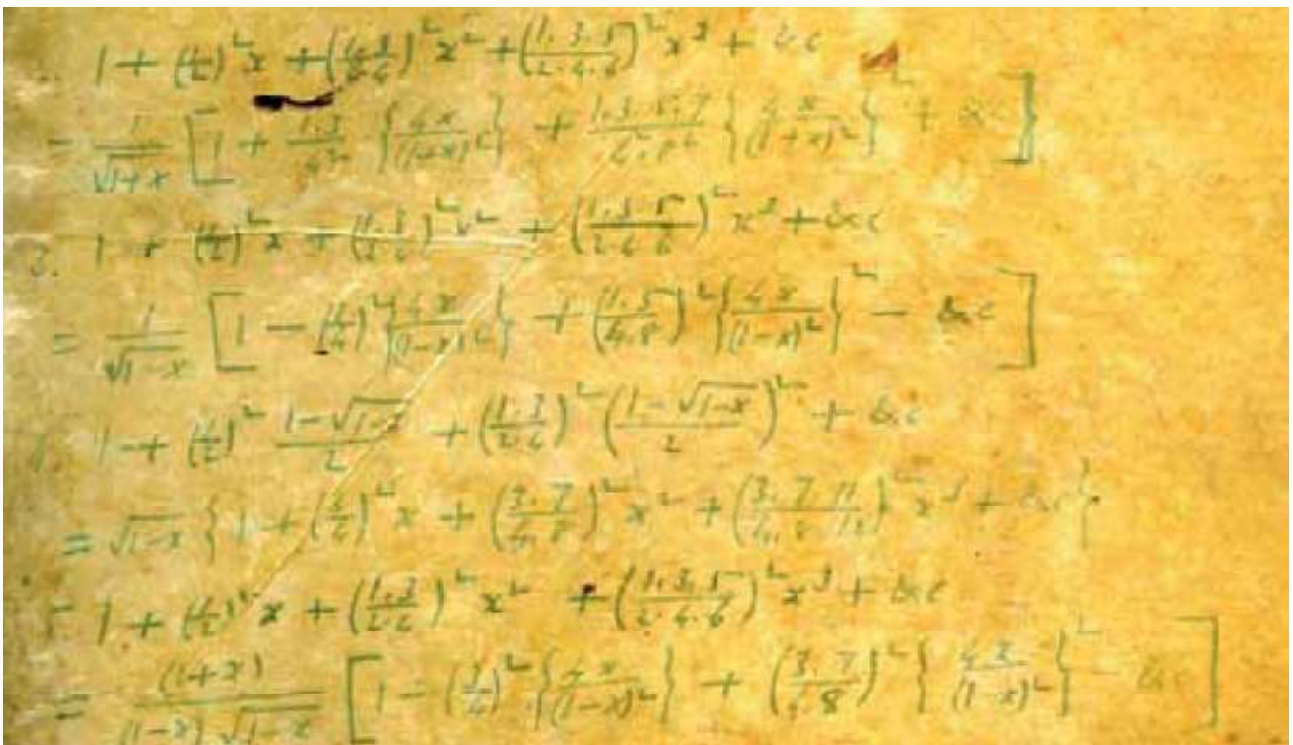 1 + (1/2)²x + (1·3/2·4)²x² + (1·3·5/2·4·6)²x³ + &c
= 1/√(1+x) [1 + 1·3/4² {4x/(1+x)²} + 1·3·5·7/4²·8² {4x/(1+x)²}² + &c]
3. 1 + (1/2)²x + (1·3/2·4)²x² + (1·3·5/2·4·6)²x³ + &c
= 1/√(1-x) [1 - (1/4)²{4x/(1-x)²} + (1·5/4·8)²{4x/(1-x)²}² - &c]
1 + (1/2)² (1-√(1-x))/2 + (1·3/2·4)² ((1-√(1-x))/2)² + &c
= √(1-x) {1 + (3/4)²x + (3·7/4·8)²x² + (3·7·11/4·8·12)²x³ + &c}
1 + (1/2)²x + (1·3/2·4)²x² + (1·3·5/2·4·6)²x³ + &c
= (1+x)/((1-x)√(1-x)) [1 - (3/4)²{4x/(1-x)²} + (3·7/4·8)²{4x/(1-x)²}² - &c]